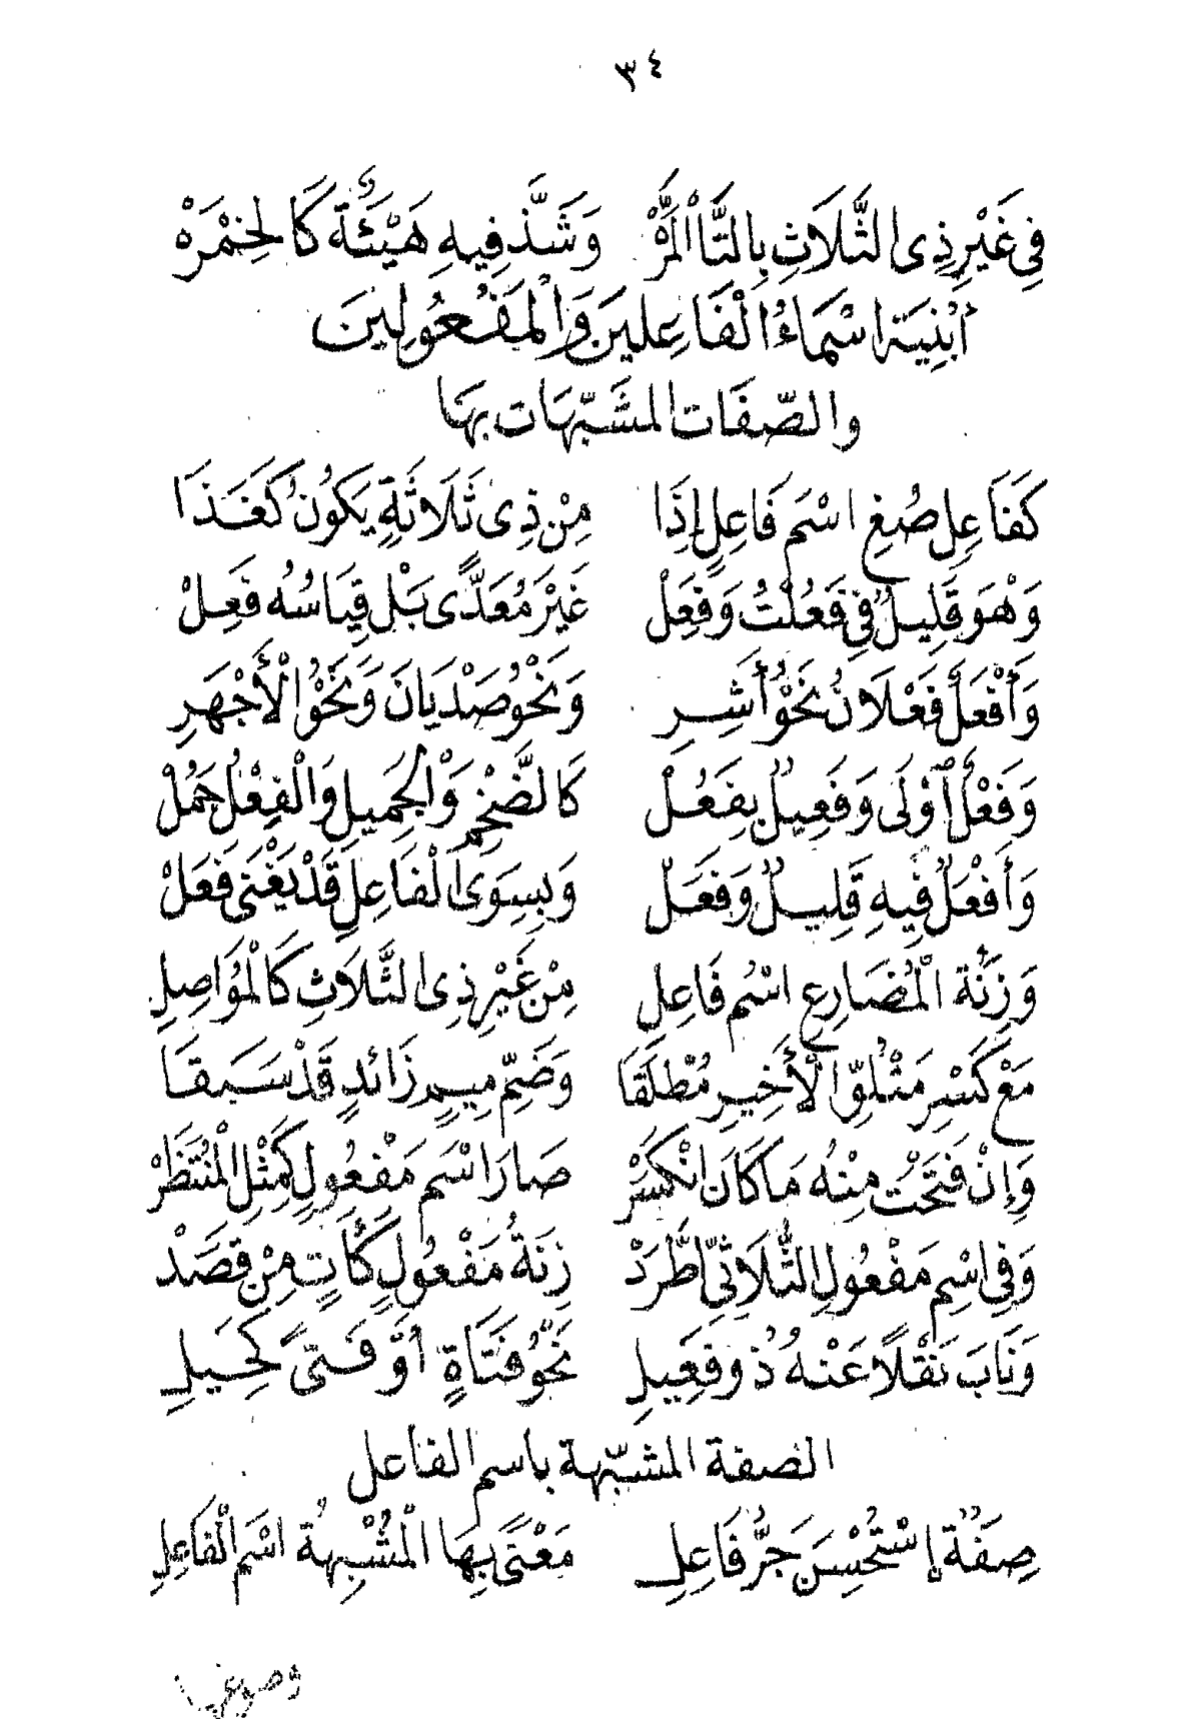 ٣٤
فِى غَيْرِ ذِى الثَّلَاثِ بِالتَّا الْمَرَّهْ وَشَذَّ فِيهِ هَيْئَةٌ كَالْخِمْرَهْ
أَبْنِيَة اسْمَاءُ الْفَاعِلِينَ وَالْمَفْعُولِينَ
والصّفَات المشَبّهَات بهَا
كَفَاعِلٍ صُغِ اسْمَ فَاعِلٍ إِذَا مِنْ ذِى ثَلَاثَةٍ يَكُونُ كَغَذَا
وَهْوَ قَلِيلٌ فِى فَعُلْتُ وَفَعِلْ غَيْرَ مُعَدًّى بَلْ قِيَاسُهُ فَعِلْ
وَأَفْعَلٌ فَعْلَانُ نَحْوُ أَشِرِ وَنَحْوُ صَدْيَانَ وَنَحْوُ الْأَجْهَرِ
وَفَعْلٌ أوْلَى وَفَعِيلٌ بِفَعُلْ كَالضَّخْمِ وَالْجَمِيلِ وَالْفِعْلُ جَمُلْ
وَأَفْعَلٌ فِيهِ قَلِيلٌ وَفَعَلْ وَبِسِوَى الْفَاعِلِ قَدْ يَغْنَى فَعَلْ
وَزِنَةُ الْمُضَارِعِ اسْمُ فَاعِلِ مِنْ غَيْرِ ذِى الثَّلَاثِ كَالْمُوَاصِلِ
مَعْ كَسْرِ مَتْلُوِّ الْأَخِيرِ مُطْلَقَا وَضَمِّ مِيمٍ زَائدٍ قَدْ سَبَقَا
وَإِنْ فَتَحْتَ مِنْهُ مَا كَانَ انْكَسَرْ صَارَ اسْمَ مَفْعُولٍ كَمِثْلِ الْمُنْتَظَرْ
وَفِى اسْمِ مَفْعُولِ الثُّلَاثِىِّ اطَّرَدْ زِنَةُ مَفْعُولٍ كَآتٍ مِنْ قَصَدْ
وَنَابَ نَقْلًا عَنْهُ ذُو فَعِيلِ نَحْوُ فَتَاةٍ أوْ فَتىً كَحِيلِ
الصفة المشبّهة باسم الفاعل
صِفَةٌ إسْتُحْسِنَ جَرُّ فَاعِلِ مَعْنًى بِهَا الْمُشْبِهةُ اسْمَ الْفَاعِلِ
وصوغها